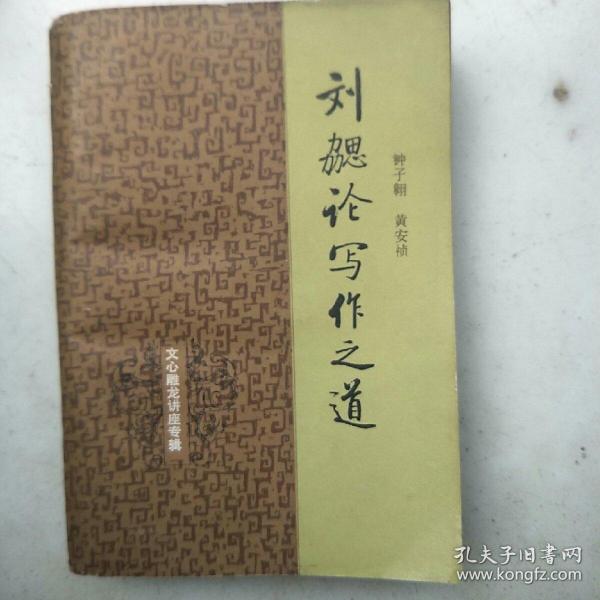 刘勰论写作之道
钟子翱 黄安祯
文心雕龙讲座专辑
孔夫子旧书网
www.kongfz.com